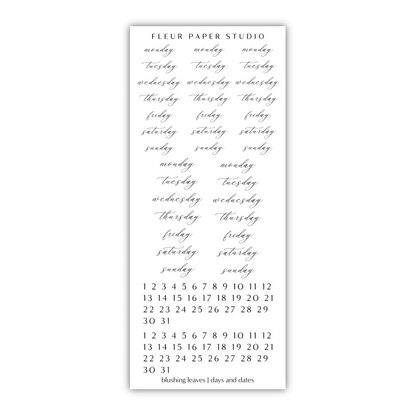 FLEUR PAPER STUDIO
monday monday monday
tuesday tuesday tuesday
wednesday wednesday wednesday
thursday thursday thursday
friday friday friday
saturday saturday saturday
sunday sunday sunday
monday monday
tuesday tuesday
wednesday wednesday
thursday thursday
friday friday
saturday saturday
sunday sunday
1 2 3 4 5 6 7 8 9 10 11 12
13 14 15 16 17 18 19 20 21
22 23 24 25 26 27 28 29
30 31
1 2 3 4 5 6 7 8 9 10 11 12
13 14 15 16 17 18 19 20 21
22 23 24 25 26 27 28 29
30 31
blushing leaves | days and dates